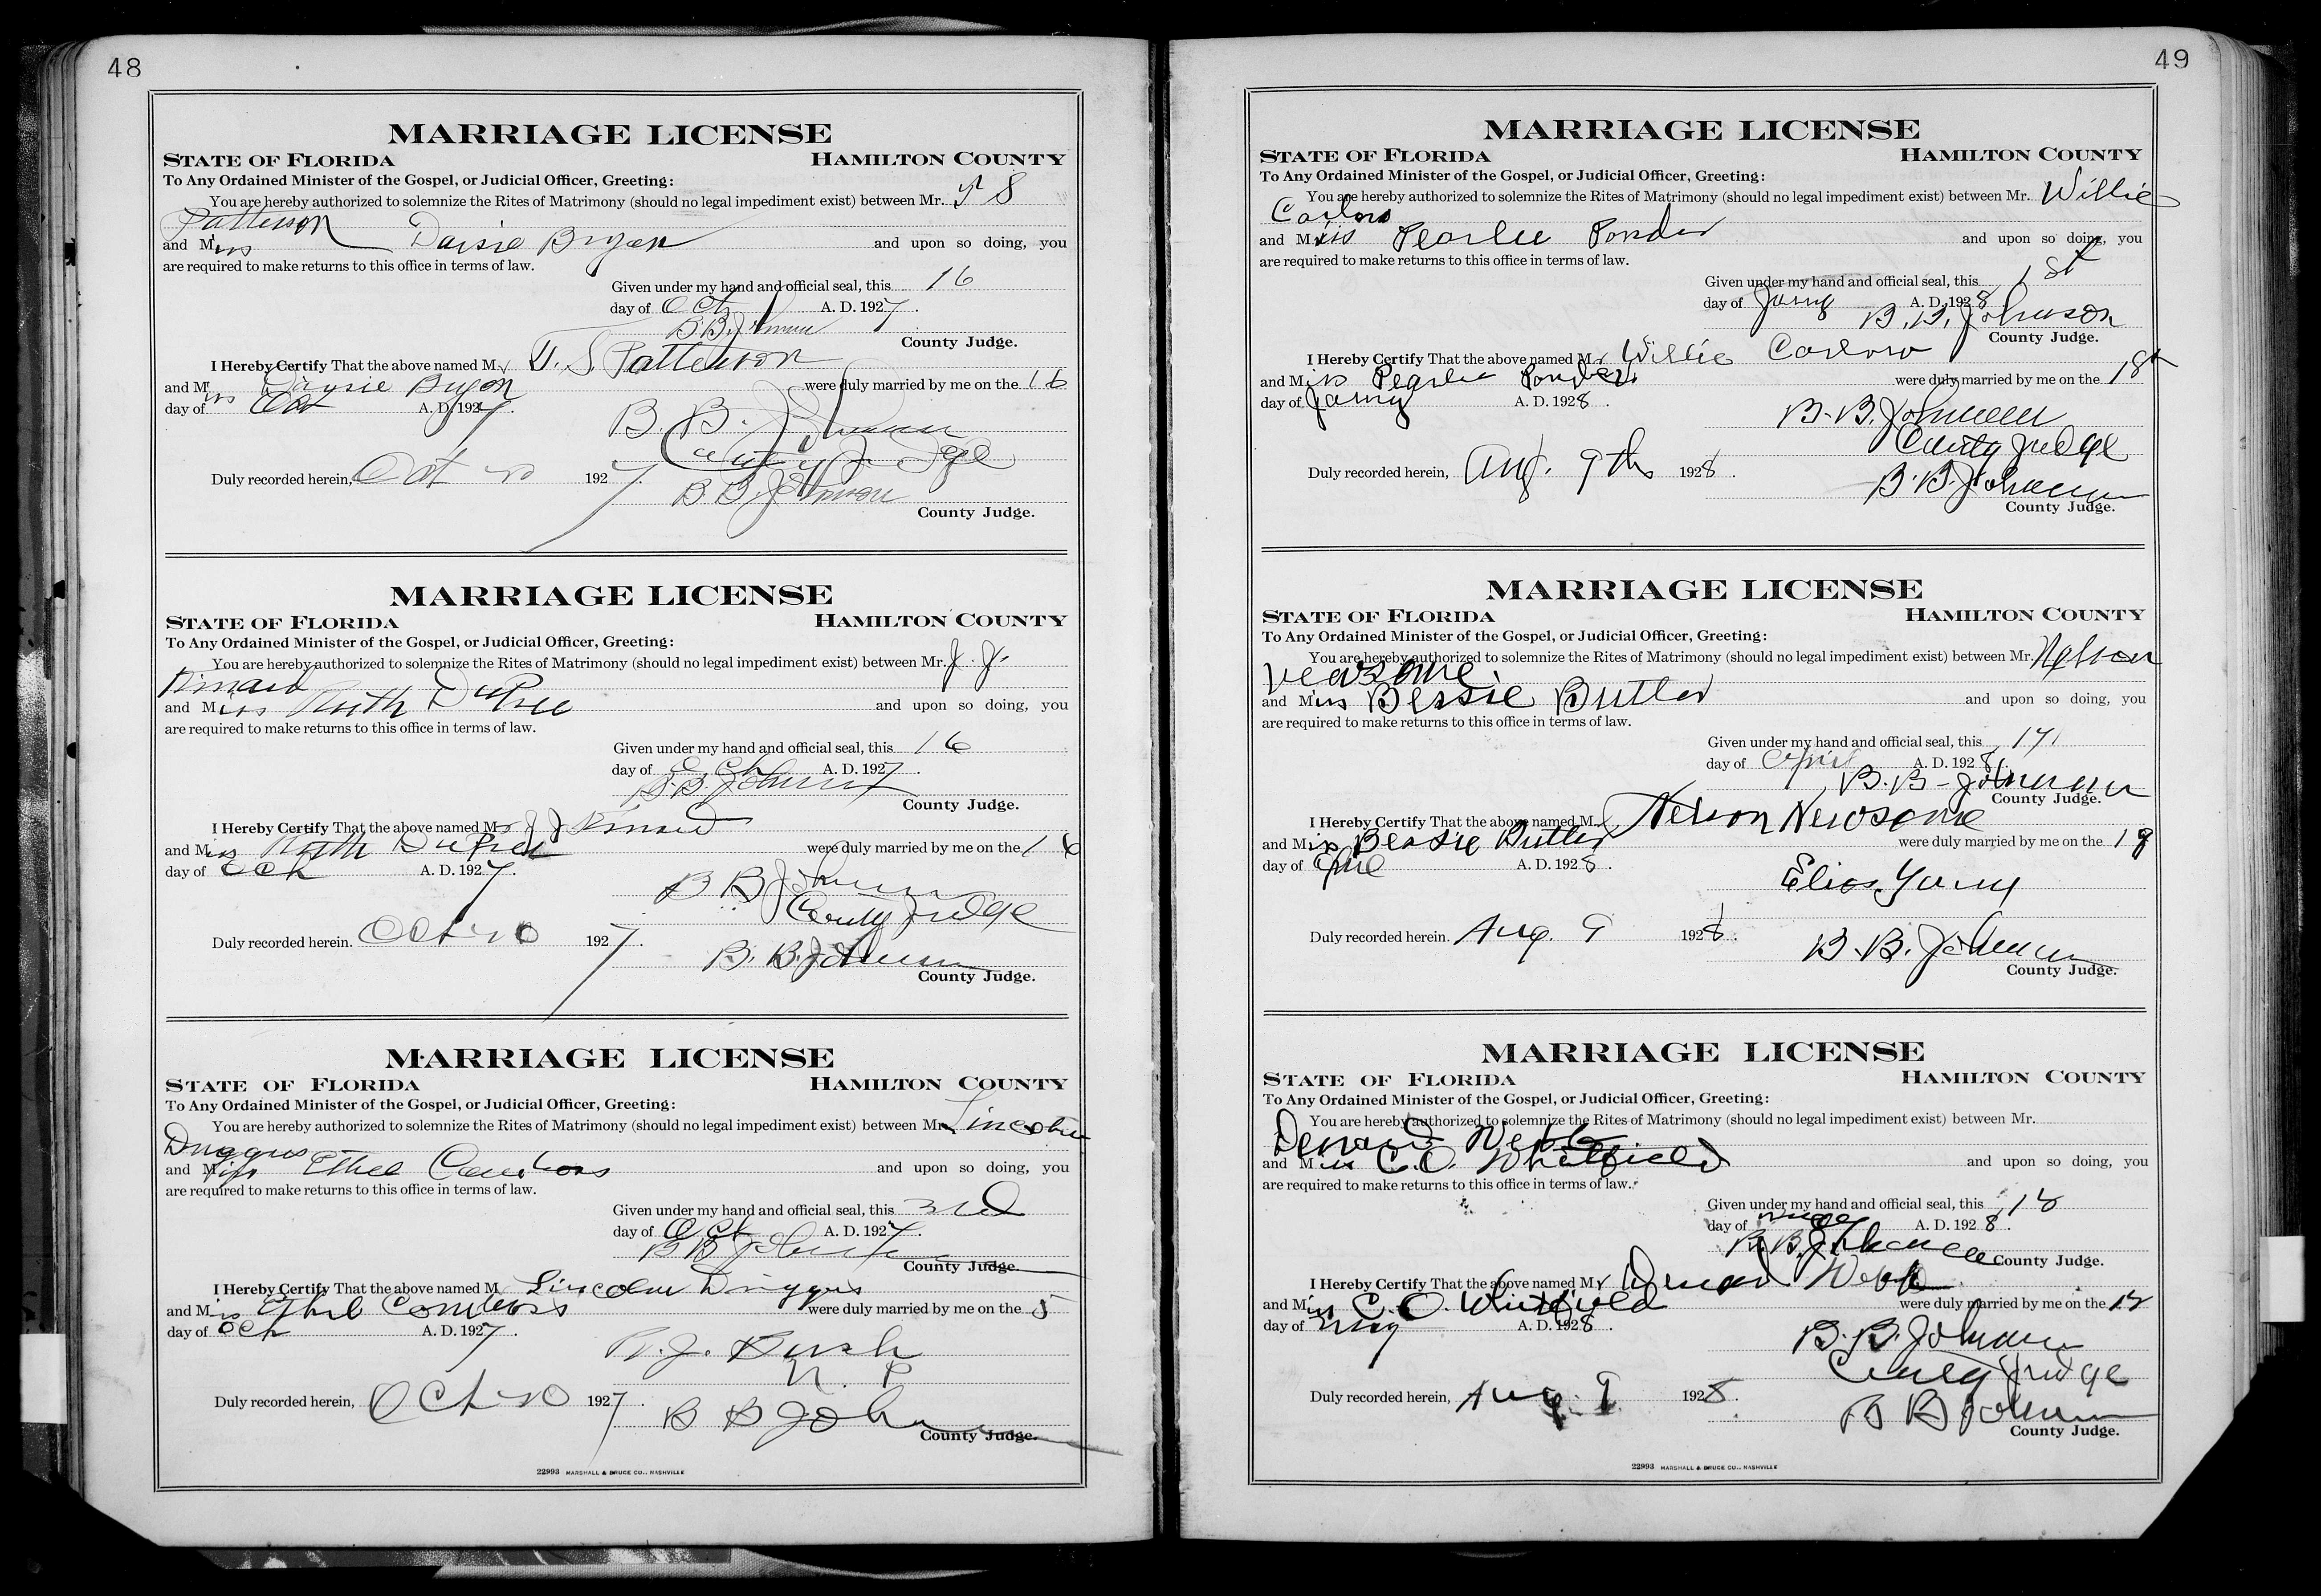 48
MARRIAGE LICENSE
STATE OF FLORIDA HAMILTON COUNTY
To Any Ordained Minister of the Gospel, or Judicial Officer, Greeting:
You are hereby authorized to solemnize the Rites of Matrimony (should no legal impediment exist) between Mr.
Patterson
and Miss Daisie Bryan and upon so doing, you
are required to make returns to this office in terms of law.
Given under my hand and official seal, this 16
day of Oct A. D. 1927.
B. B. Johnson
County Judge.
I Hereby Certify That the above named Mr Patterson
and Miss Daysie Bryan were duly married by me on the 16
day of Oct A. D. 1927.
B. B. Johnson
County Judge
Duly recorded herein, Oct 20 1927.
B B Johnson
County Judge.
MARRIAGE LICENSE
STATE OF FLORIDA HAMILTON COUNTY
To Any Ordained Minister of the Gospel, or Judicial Officer, Greeting:
You are hereby authorized to solemnize the Rites of Matrimony (should no legal impediment exist) between Mr. J. J.
Kinard
and Miss Ruth DuPree and upon so doing, you
are required to make returns to this office in terms of law.
Given under my hand and official seal, this 16
day of Oct A. D. 1927.
B. B. Johnson
County Judge.
I Hereby Certify That the above named Mr J J Kinard
and Miss Ruth DuPree were duly married by me on the 16
day of Oct A. D. 1927.
B B Johnson
County Judge
Duly recorded herein. Oct 20 1927.
B. B. Johnson
County Judge.
MARRIAGE LICENSE
STATE OF FLORIDA HAMILTON COUNTY
To Any Ordained Minister of the Gospel, or Judicial Officer, Greeting:
You are hereby authorized to solemnize the Rites of Matrimony (should no legal impediment exist) between Mr. Lincoln
and Miss Ethel and upon so doing, you
are required to make returns to this office in terms of law.
Given under my hand and official seal, this 3rd
day of Oct A. D. 1927.
B B Johnson
County Judge.
I Hereby Certify That the above named Mr Lincoln
and Miss Ethel were duly married by me on the 5
day of Oct A. D. 1927.
Bush
N. P
Duly recorded herein, Oct 20 1927.
B B Johnson
County Judge.
22993 MARSHALL & BRUCE CO., NASHVILLE
49
MARRIAGE LICENSE
STATE OF FLORIDA HAMILTON COUNTY
To Any Ordained Minister of the Gospel, or Judicial Officer, Greeting:
You are hereby authorized to solemnize the Rites of Matrimony (should no legal impediment exist) between Mr. Willie
and Miss Pearlie Ponder and upon so doing, you
are required to make returns to this office in terms of law.
Given under my hand and official seal, this 1st
day of Jany A. D. 1928
B. B. Johnson
County Judge.
I Hereby Certify That the above named Mr Willie
and Miss Pearlie Ponder were duly married by me on the 1st
day of Jany A. D. 1928.
B. B. Johnson
County Judge
Duly recorded herein, Aug. 9th 1928.
B. B. Johnson
County Judge.
MARRIAGE LICENSE
STATE OF FLORIDA HAMILTON COUNTY
To Any Ordained Minister of the Gospel, or Judicial Officer, Greeting:
You are hereby authorized to solemnize the Rites of Matrimony (should no legal impediment exist) between Mr. Nelson
Newsome
and Miss Bessie Butler and upon so doing, you
are required to make returns to this office in terms of law.
Given under my hand and official seal, this 17
day of April A. D. 1928.
B. B. Johnson
County Judge.
I Hereby Certify That the above named M. Nelson Newsome
and Miss Bessie Butler were duly married by me on the
day of A. D. 1928.
Duly recorded herein. Aug. 9 1928.
B. B. Johnson
County Judge.
MARRIAGE LICENSE
STATE OF FLORIDA HAMILTON COUNTY
To Any Ordained Minister of the Gospel, or Judicial Officer, Greeting:
You are hereby authorized to solemnize the Rites of Matrimony (should no legal impediment exist) between Mr.
Webb
and Miss C. O. Whitfield and upon so doing, you
are required to make returns to this office in terms of law.
Given under my hand and official seal, this
day of May A. D. 1928.
B. B. Johnson
County Judge.
I Hereby Certify That the above named Mr Webb
and Miss C. O. Whitfield were duly married by me on the
day of May A. D. 1928.
B. B. Johnson
County Judge
Duly recorded herein, Aug. 9 1928.
B B Johnson
County Judge.
22993 MARSHALL & BRUCE CO., NASHVILLE